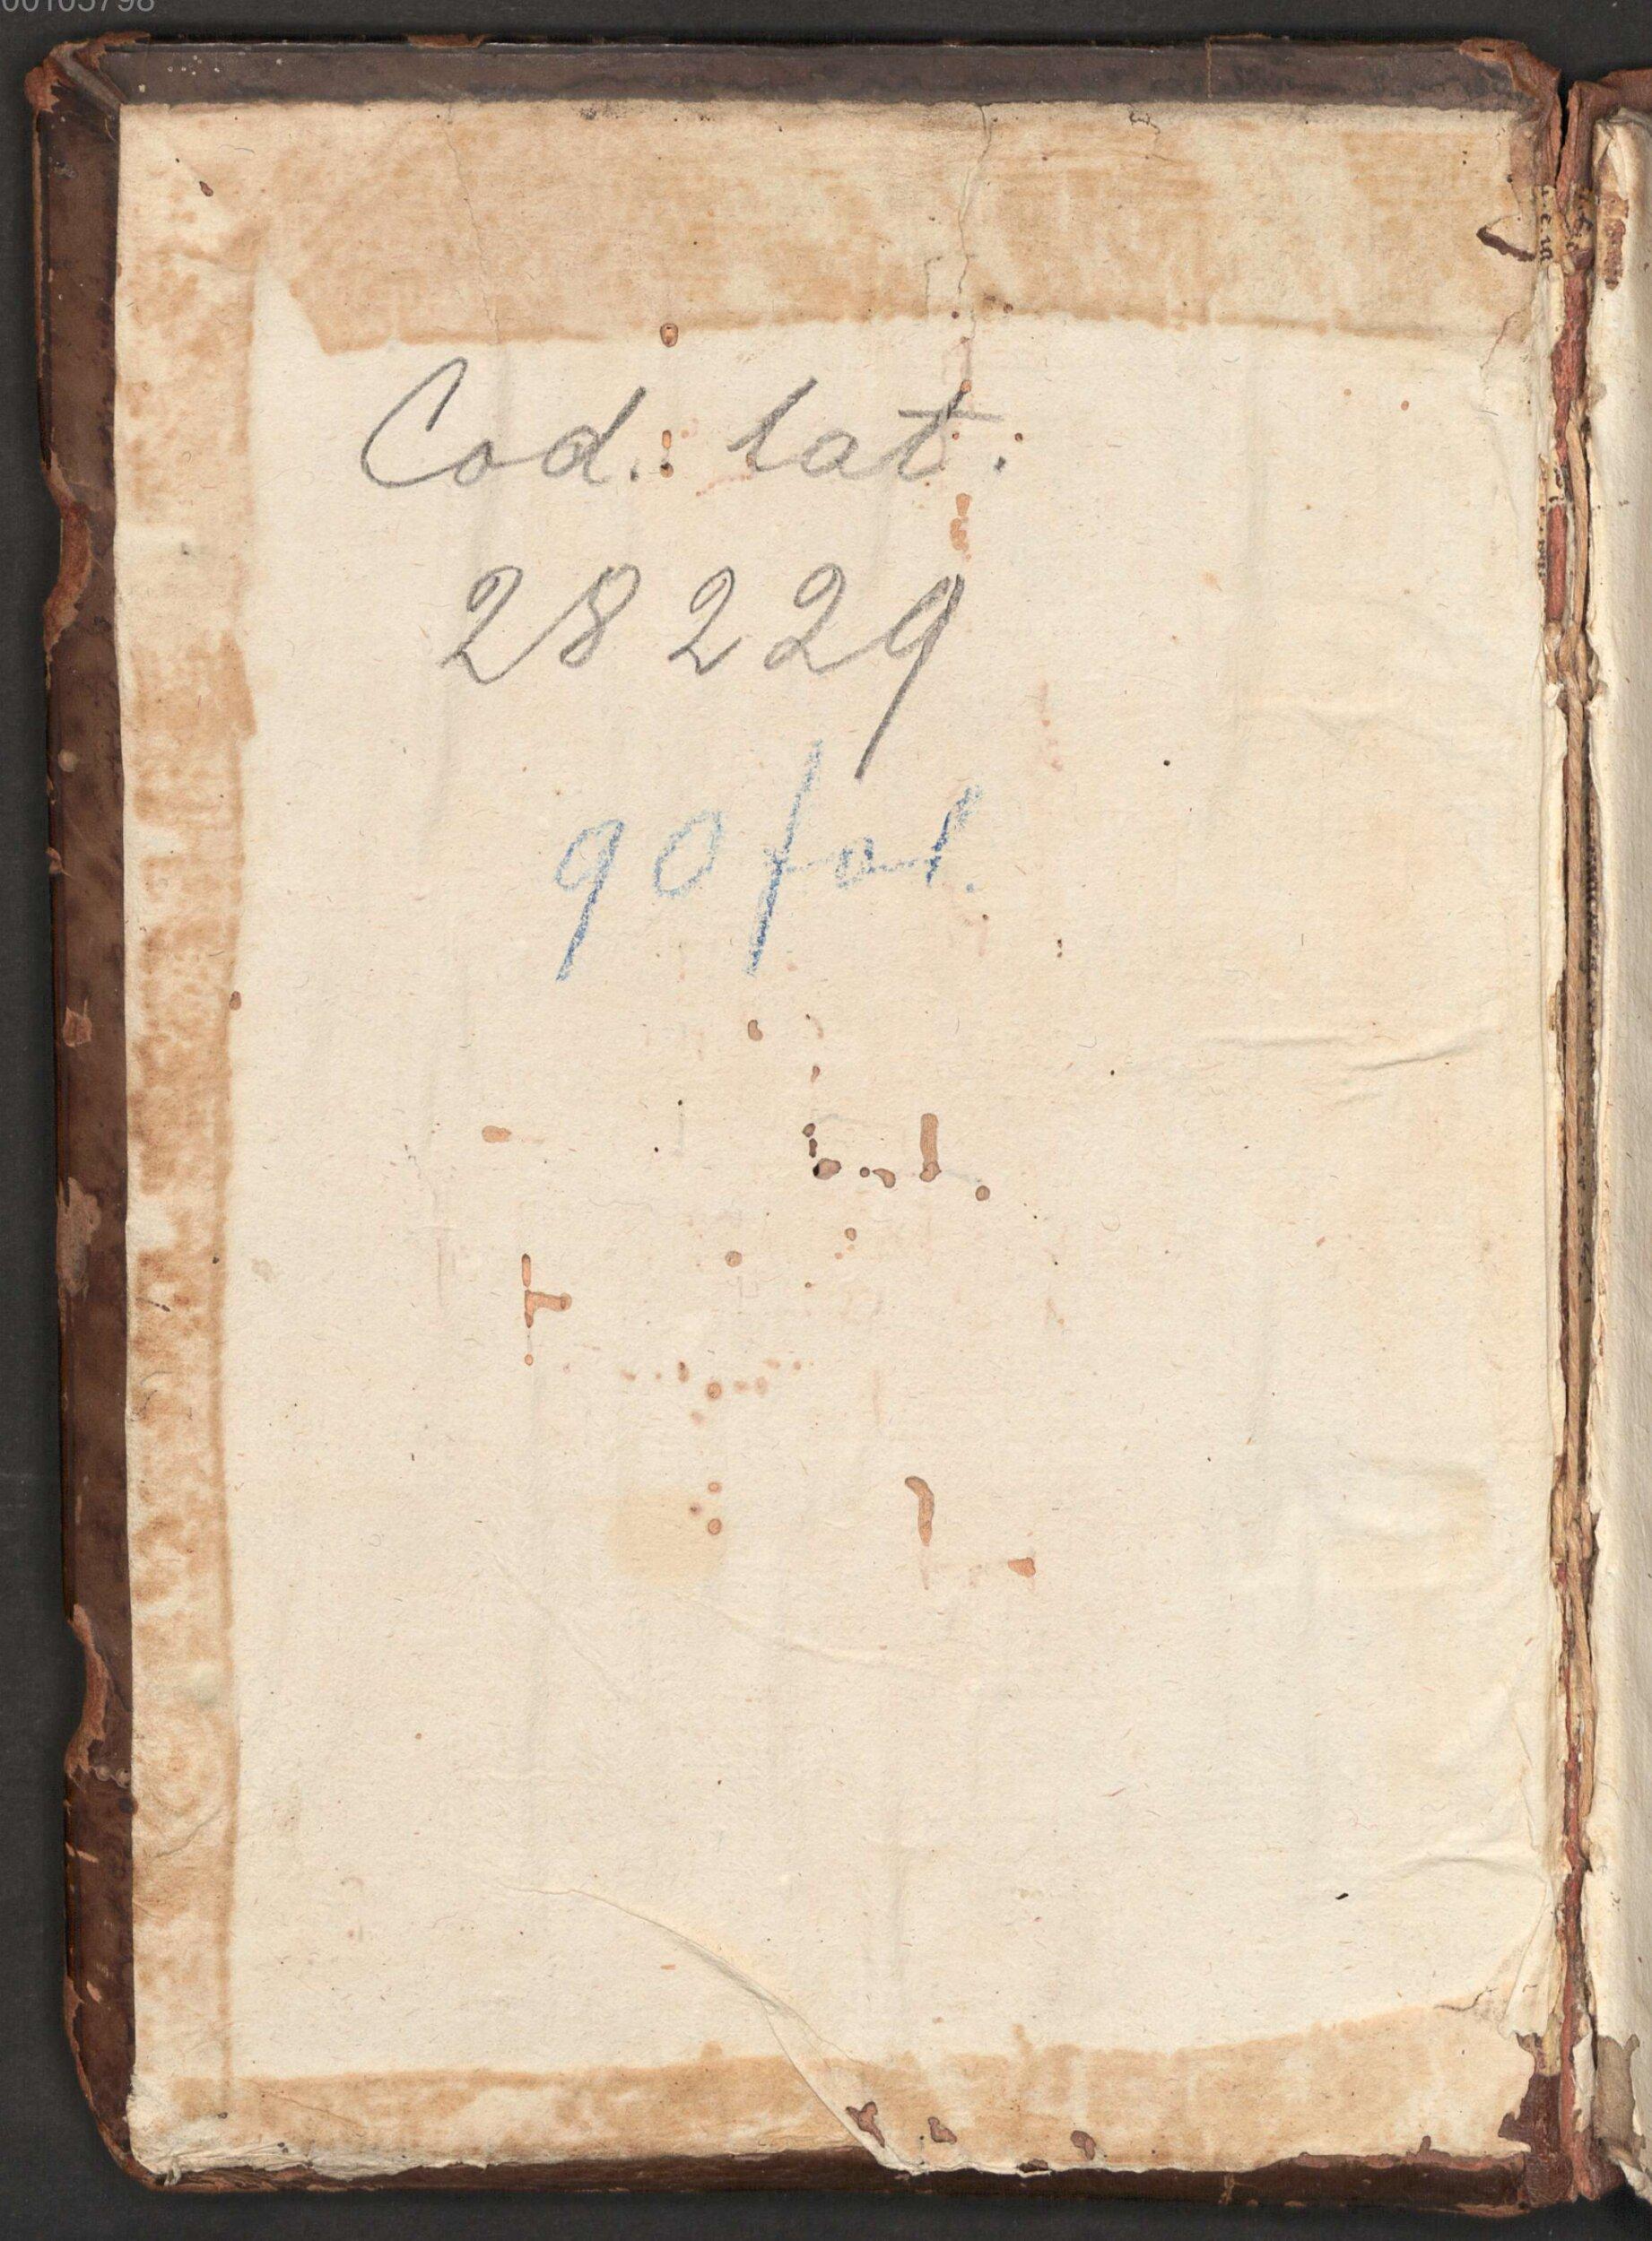 00105798
Cod. lat.
28229
90 fol.